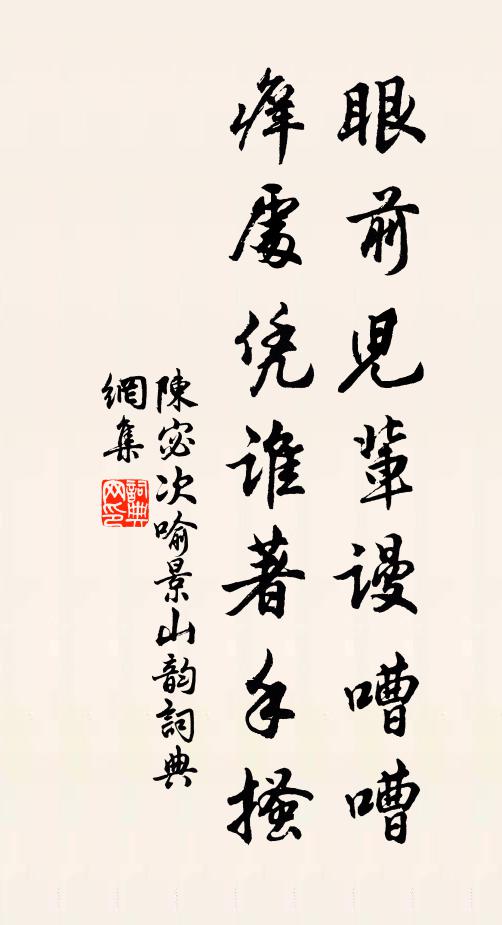 眼前兒輩謾嘈嘈
癢處凭誰著手搔
陳宓次喻景山韵詞典
網集
詞典
网印